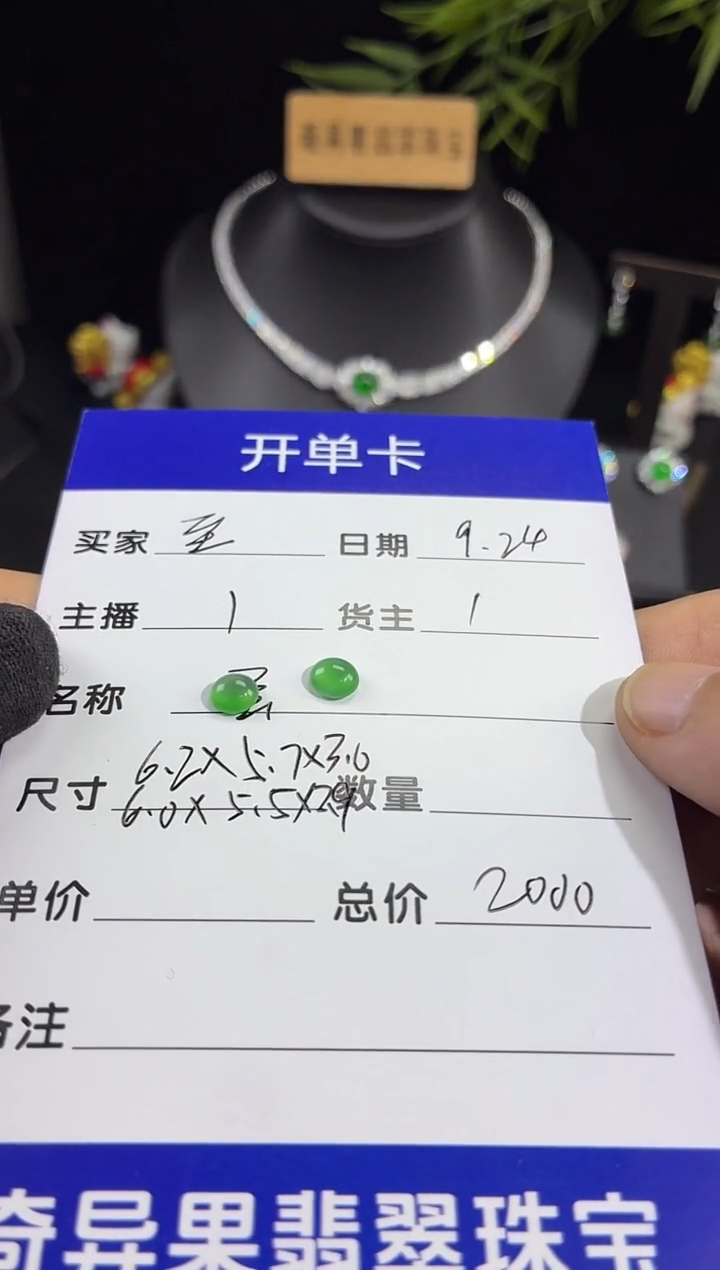 开单卡
买家 至 日期 9.24
主播 1 货主 1
名称
尺寸 6.2X5.7X3.0
6.0X5.5X2.9 数量
单价 总价 2000
备注
奇异果翡翠珠宝